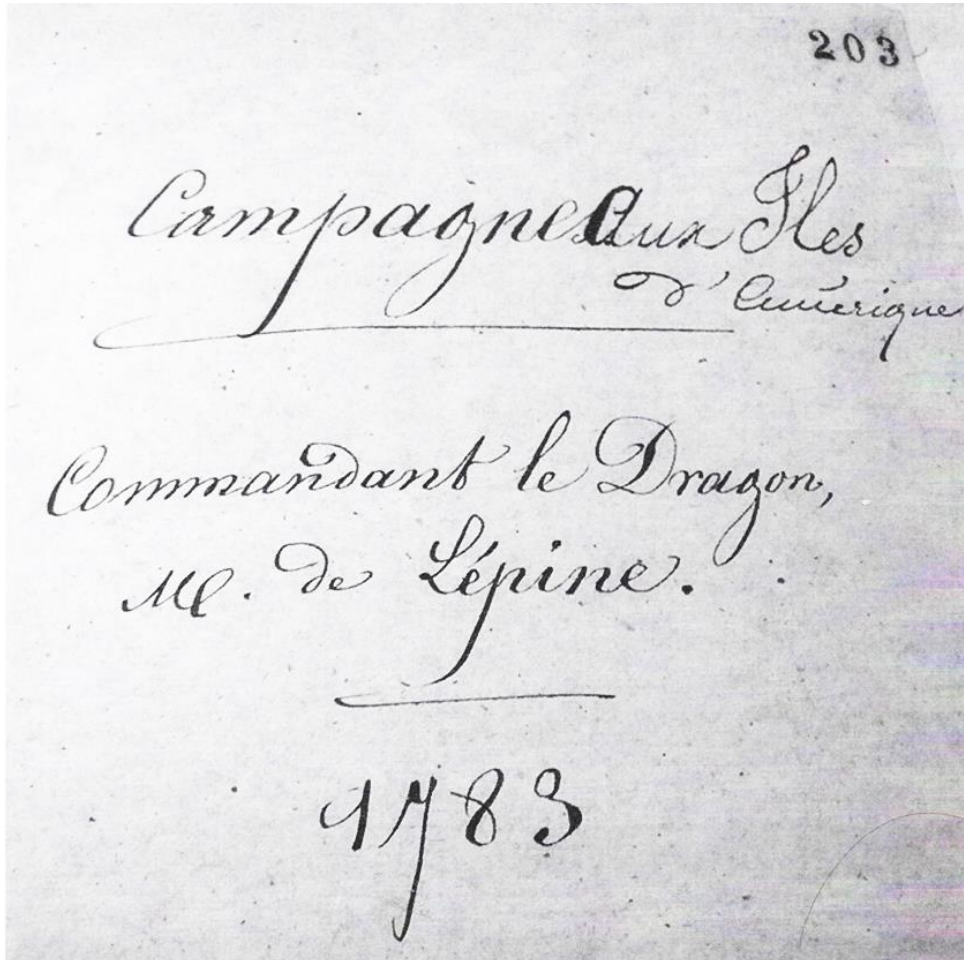 203
Campagne aux Iles
d'Amérique
Commandant le Dragon,
M. de Lépine.
1783